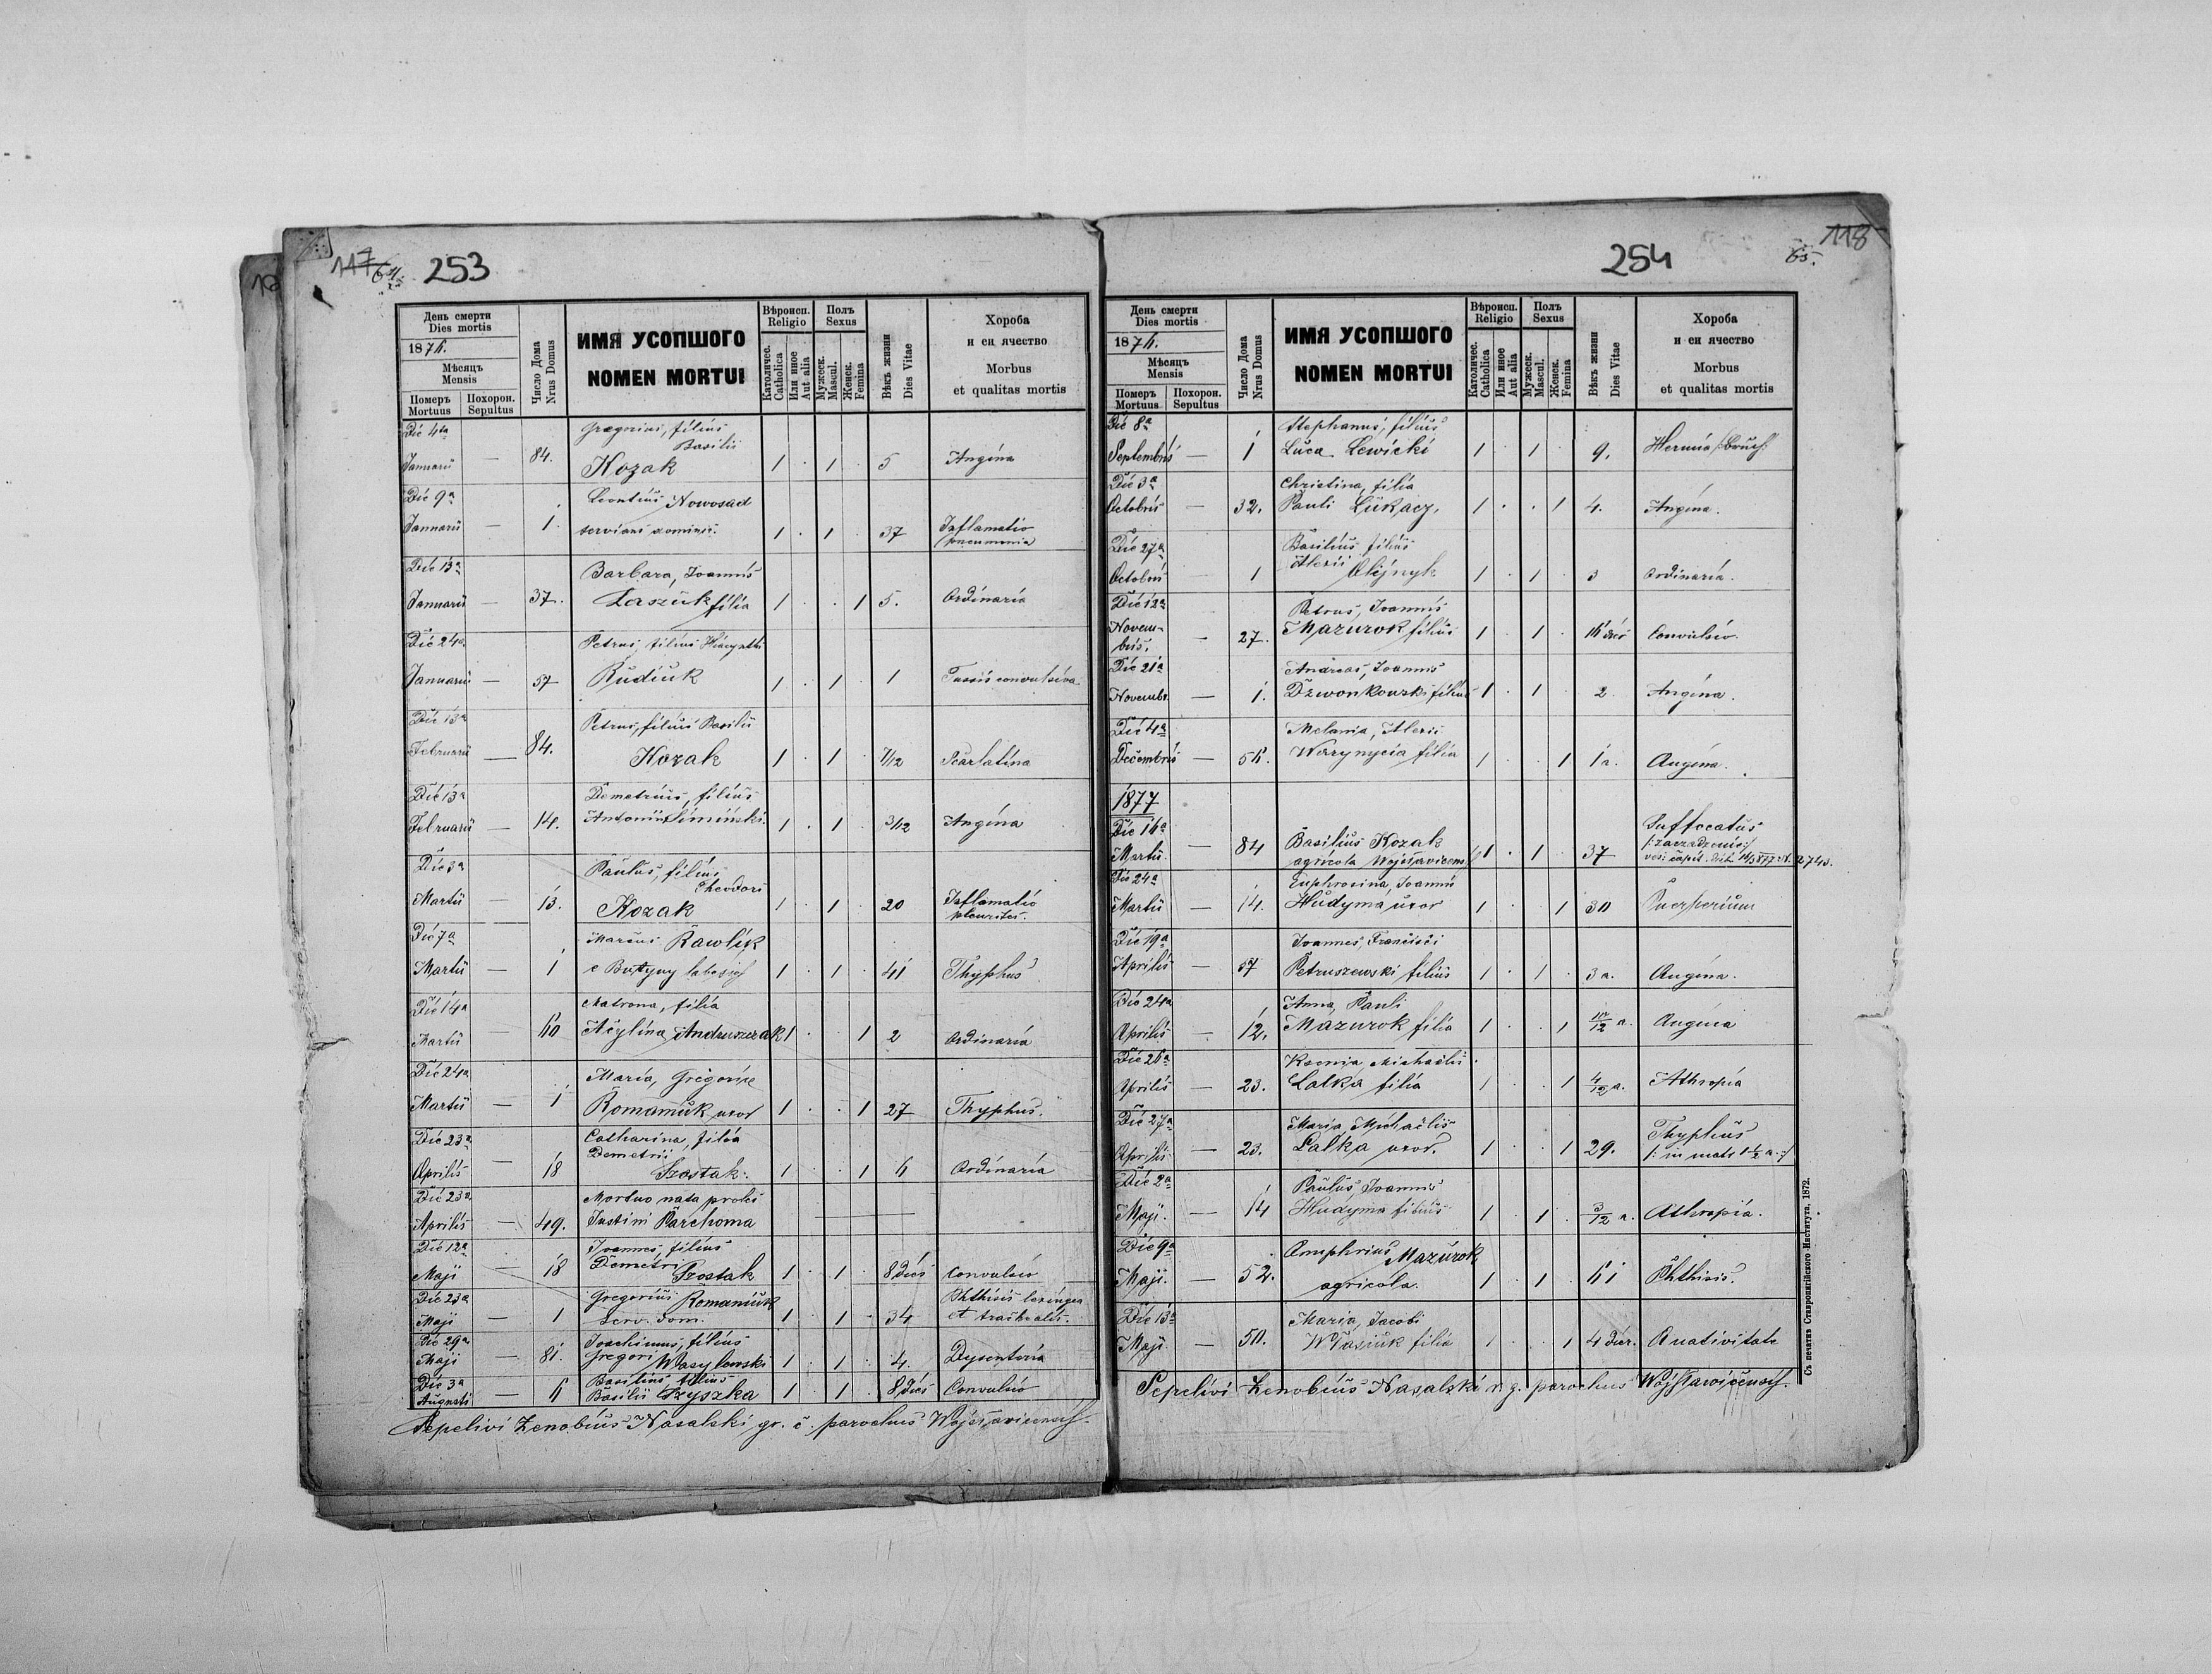 117
253
День смерти
Dies mortis
1876.
Мѣсяцъ
Mensis
Померъ
Mortuus
Похорон.
Sepultus
Число Дома
Nrus Domus
ИМЯ УСОПШОГО
NOMEN MORTUI
Вѣроисп.
Religio
Католичес.
Catholica
Или иное
Aut alia
Полъ
Sexus
Мужеск.
Mascul.
Женск.
Femina
Вѣкъ жизни
Dies Vitae
Хороба
и еи ячество
Morbus
et qualitas mortis
Die 4ta Gregorius, filius
Basilii
Januarii — 84. Kozak 1 · 1 · 5 Angina
Die 9a Leontius Nowosad
Januarii — 1 serviens 1 · 1 · 37 Inflamatio
pneumonia
Die 13a Barbara, Joannis
Januarii — 37. Laszuk filia 1 · · 1 5. Ordinaria
Die 24a Petrus, filius Hiacynthi
Januarii — 57 Rudiuk 1 · 1 · 1 Tussis convulsiva
Die 13a Petrus, filius Basilii
Februarii — 84. Kozak 1 · 1 · 7/12 Scarlatina
Die 13a Demetrius, filius
Februarii — 14. Antonii Siminski 1 · 1 · 3/12 Angina
Die 3a Paulus, filius
Theodori
Martii — 13. Kozak 1 · 1 · 20 Inflamatio
pleurites.
Die 7a Marcus Pawlik
Martii — 1 e Butyny 1 · 1 · 41 Thyphus
Die 14a Matrona, filia
Martii — 60 Acylina Andruszczak 1 · · 1 2 Ordinaria
Die 24a Maria, Gregorii
Martii — 1 Romaniuk uxor 1 · · 1 27 Thyphus.
Die 23a Catharina, filia
Demetrii
Aprilis — 18 Szostak. 1 · · 1 6 Ordinaria
Die 23a Mortuo nata proles
Aprilis — 49. Justini Parchoma —
Die 12a Joannes, filius
Maji — 18 Demetri Szostak 1 · 1 · 8 dies Convulsio
Die 23a Gregorius Romaniuk Phthisis laringea
Maji — 1 serv. dom. 1 · 1 · 34 et trachealis.
Die 29a Joachimus, filius
Maji — 81. Gregori Wasylowski 1 · 1 · 4. Dysenteria
Die 3a Basilius filius
Augusti — 6 Basilii Szyszka 1 · 1 · 8 dies Convulsio
Sepelivi Zenobius Nasalski gr. c. parochus Wojsławicensis.
254
118
65.
День смерти
Dies mortis
1876.
Мѣсяцъ
Mensis
Померъ
Mortuus
Похорон.
Sepultus
Число Дома
Nrus Domus
ИМЯ УСОПШОГО
NOMEN MORTUI
Вѣроисп.
Religio
Католичес.
Catholica
Или иное
Aut alia
Полъ
Sexus
Мужеск.
Mascul.
Женск.
Femina
Вѣкъ жизни
Dies Vitae
Хороба
и еи ячество
Morbus
et qualitas mortis
Die 8a Stephanus, filius
Septembris — 1 Luca Lewicki 1 · 1 · 9. Hernia /:bruch:/
Die 3a Christina, filia
Octobris — 32. Pauli Lukacz. 1 · · 1 4. Angina.
Die 27a Basilius filius
Octobris — 1 Alexii Olijnyk 1 · 1 · 3 Ordinaria.
Die 12a Petrus, Joannis
Novembris. — 27. Mazurok filius 1 · 1 · 16 dies Convulsio.
Die 21a Andreas, Joannis
Novembr. — 1. Dzwonkowski filius 1 · 1 · 2. Angina.
Die 4a Melania, Alexii
Decembris — 56. Werynycia filia 1 · · 1 1 a. Angina.
1877
Die 16a Suffocatus
Martii. — 84 Basilius Kozak 1 · 1 · 37 /:zaczadzenie:/
agricola Wojsławicensis
Die 24a Euphrosina, Joannis
Martii — 14. Hudyma uxor 1 · · 1 30 Puerperium
Die 19a Joannes, Francisci
Aprilis — 57 Petruszewski filius 1 · 1 · 3 a. Angina.
Die 24a Anna, Pauli
Aprilis — 12. Mazurok filia 1 · · 1 10/12 a. Angina
Die 26a Ksenia, Michaelis
Aprilis — 23. Lalka filia 1 · · 1 4/12 a. Athropia
Die 27a Maria, Michaelis
Aprilis — 23. Lalka uxor. 1 · · 1 29. Thyphus
Die 2a Paulus, Joannis
Maji. — 14 Hudyma filius 1 · 1 · 3/12 a. Athropia.
Die 9a Onuphrius Mazurok
Maji. — 52. agricola. 1 · 1 · 61 Phthisis.
Die 13a Maria, Jacobi
Maji — 50. Własiuk filia 1 · · 1 4 dier. A nativitate
Sepelivi Zenobius Nasalski r. g. parochus Wojsławicensis.
Съ печатни Ставропігійского Института. 1872.